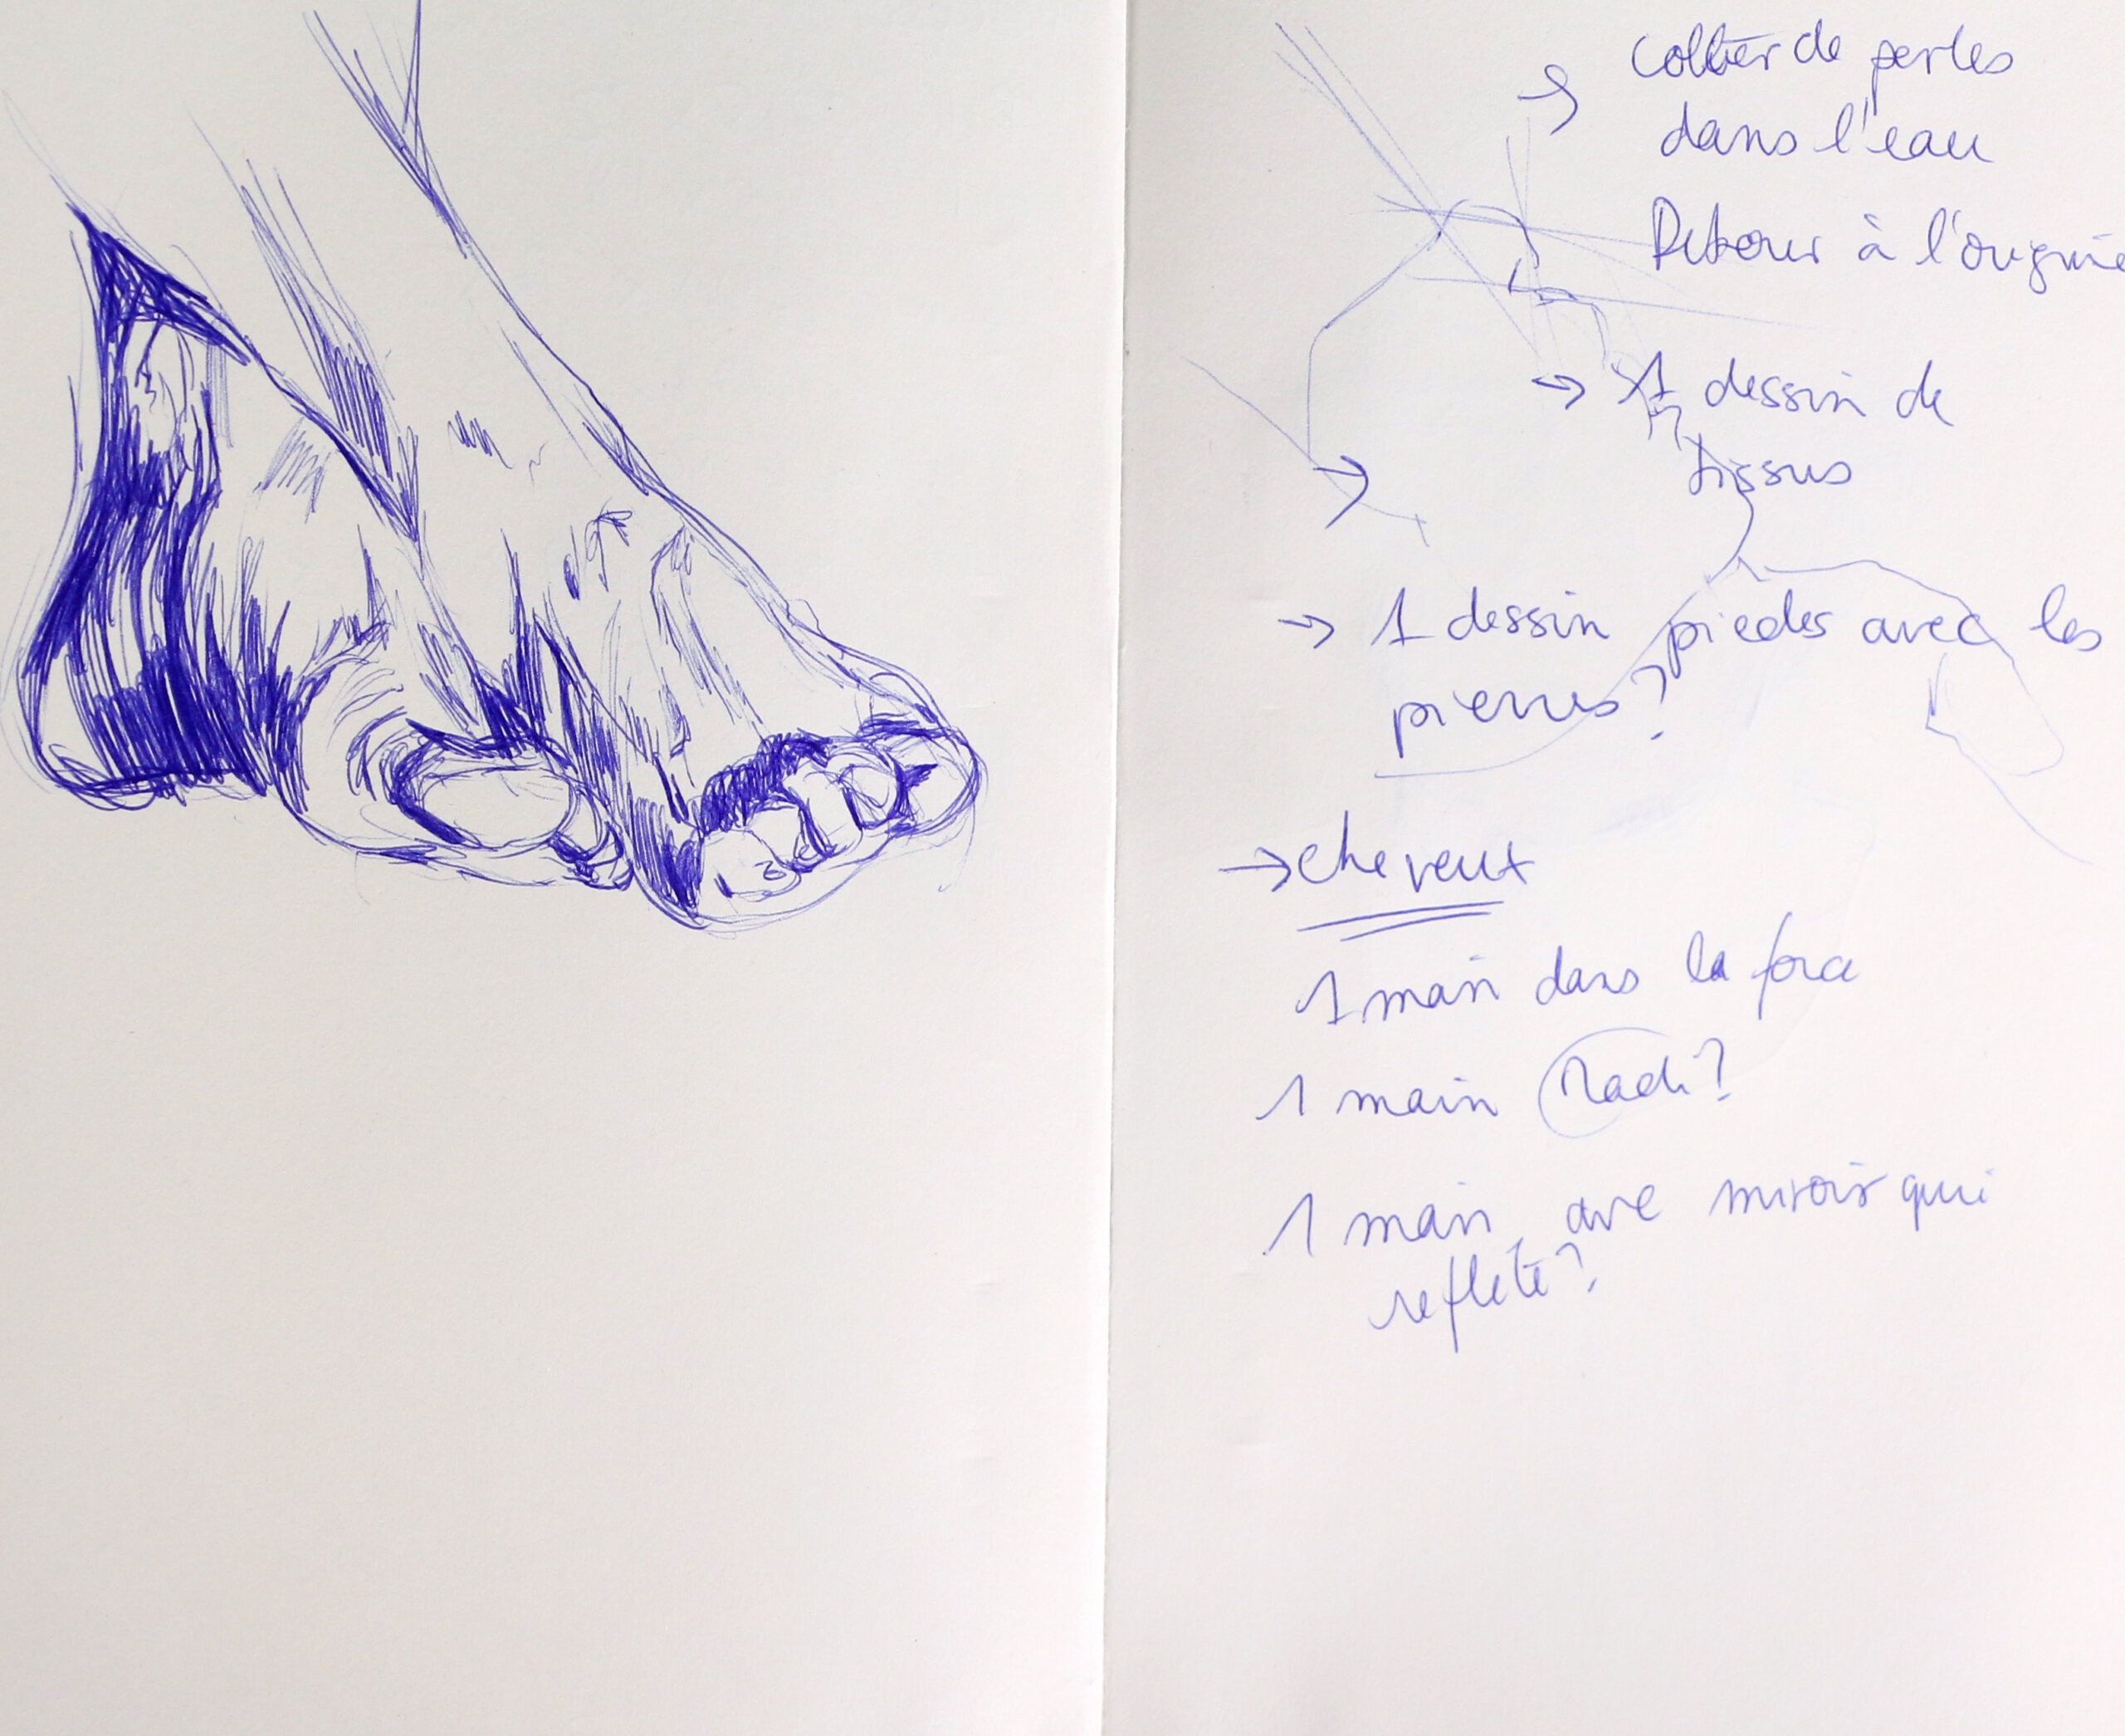 → Collier de perles
dans l'eau
Retour à l'origine
→ 1 dessin de
tissus
→
→ 1 dessin pieds avec les
pierres?
→ cheveux
1 main dans la force
1 main ?
1 main ave miroir qui
reflète?